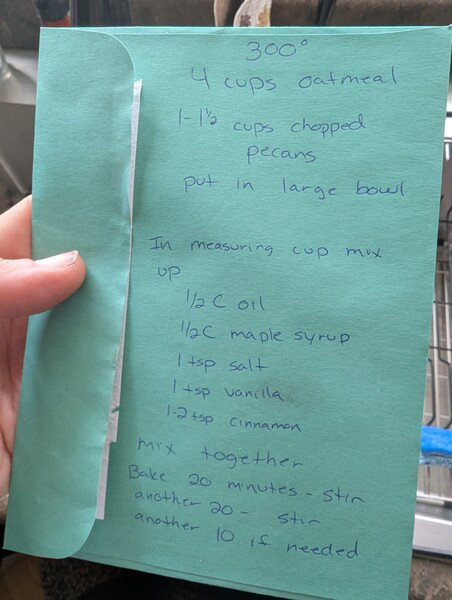 300°
4 cups oatmeal
1-1½ cups chopped
pecans
put in large bowl
In measuring cup mix
up
1/2 C oil
1/2 C maple syrup
1 tsp salt
1 tsp vanilla
1-2 tsp cinnamon
mix together
Bake 20 minutes - stir
another 20 - stir
another 10 if needed